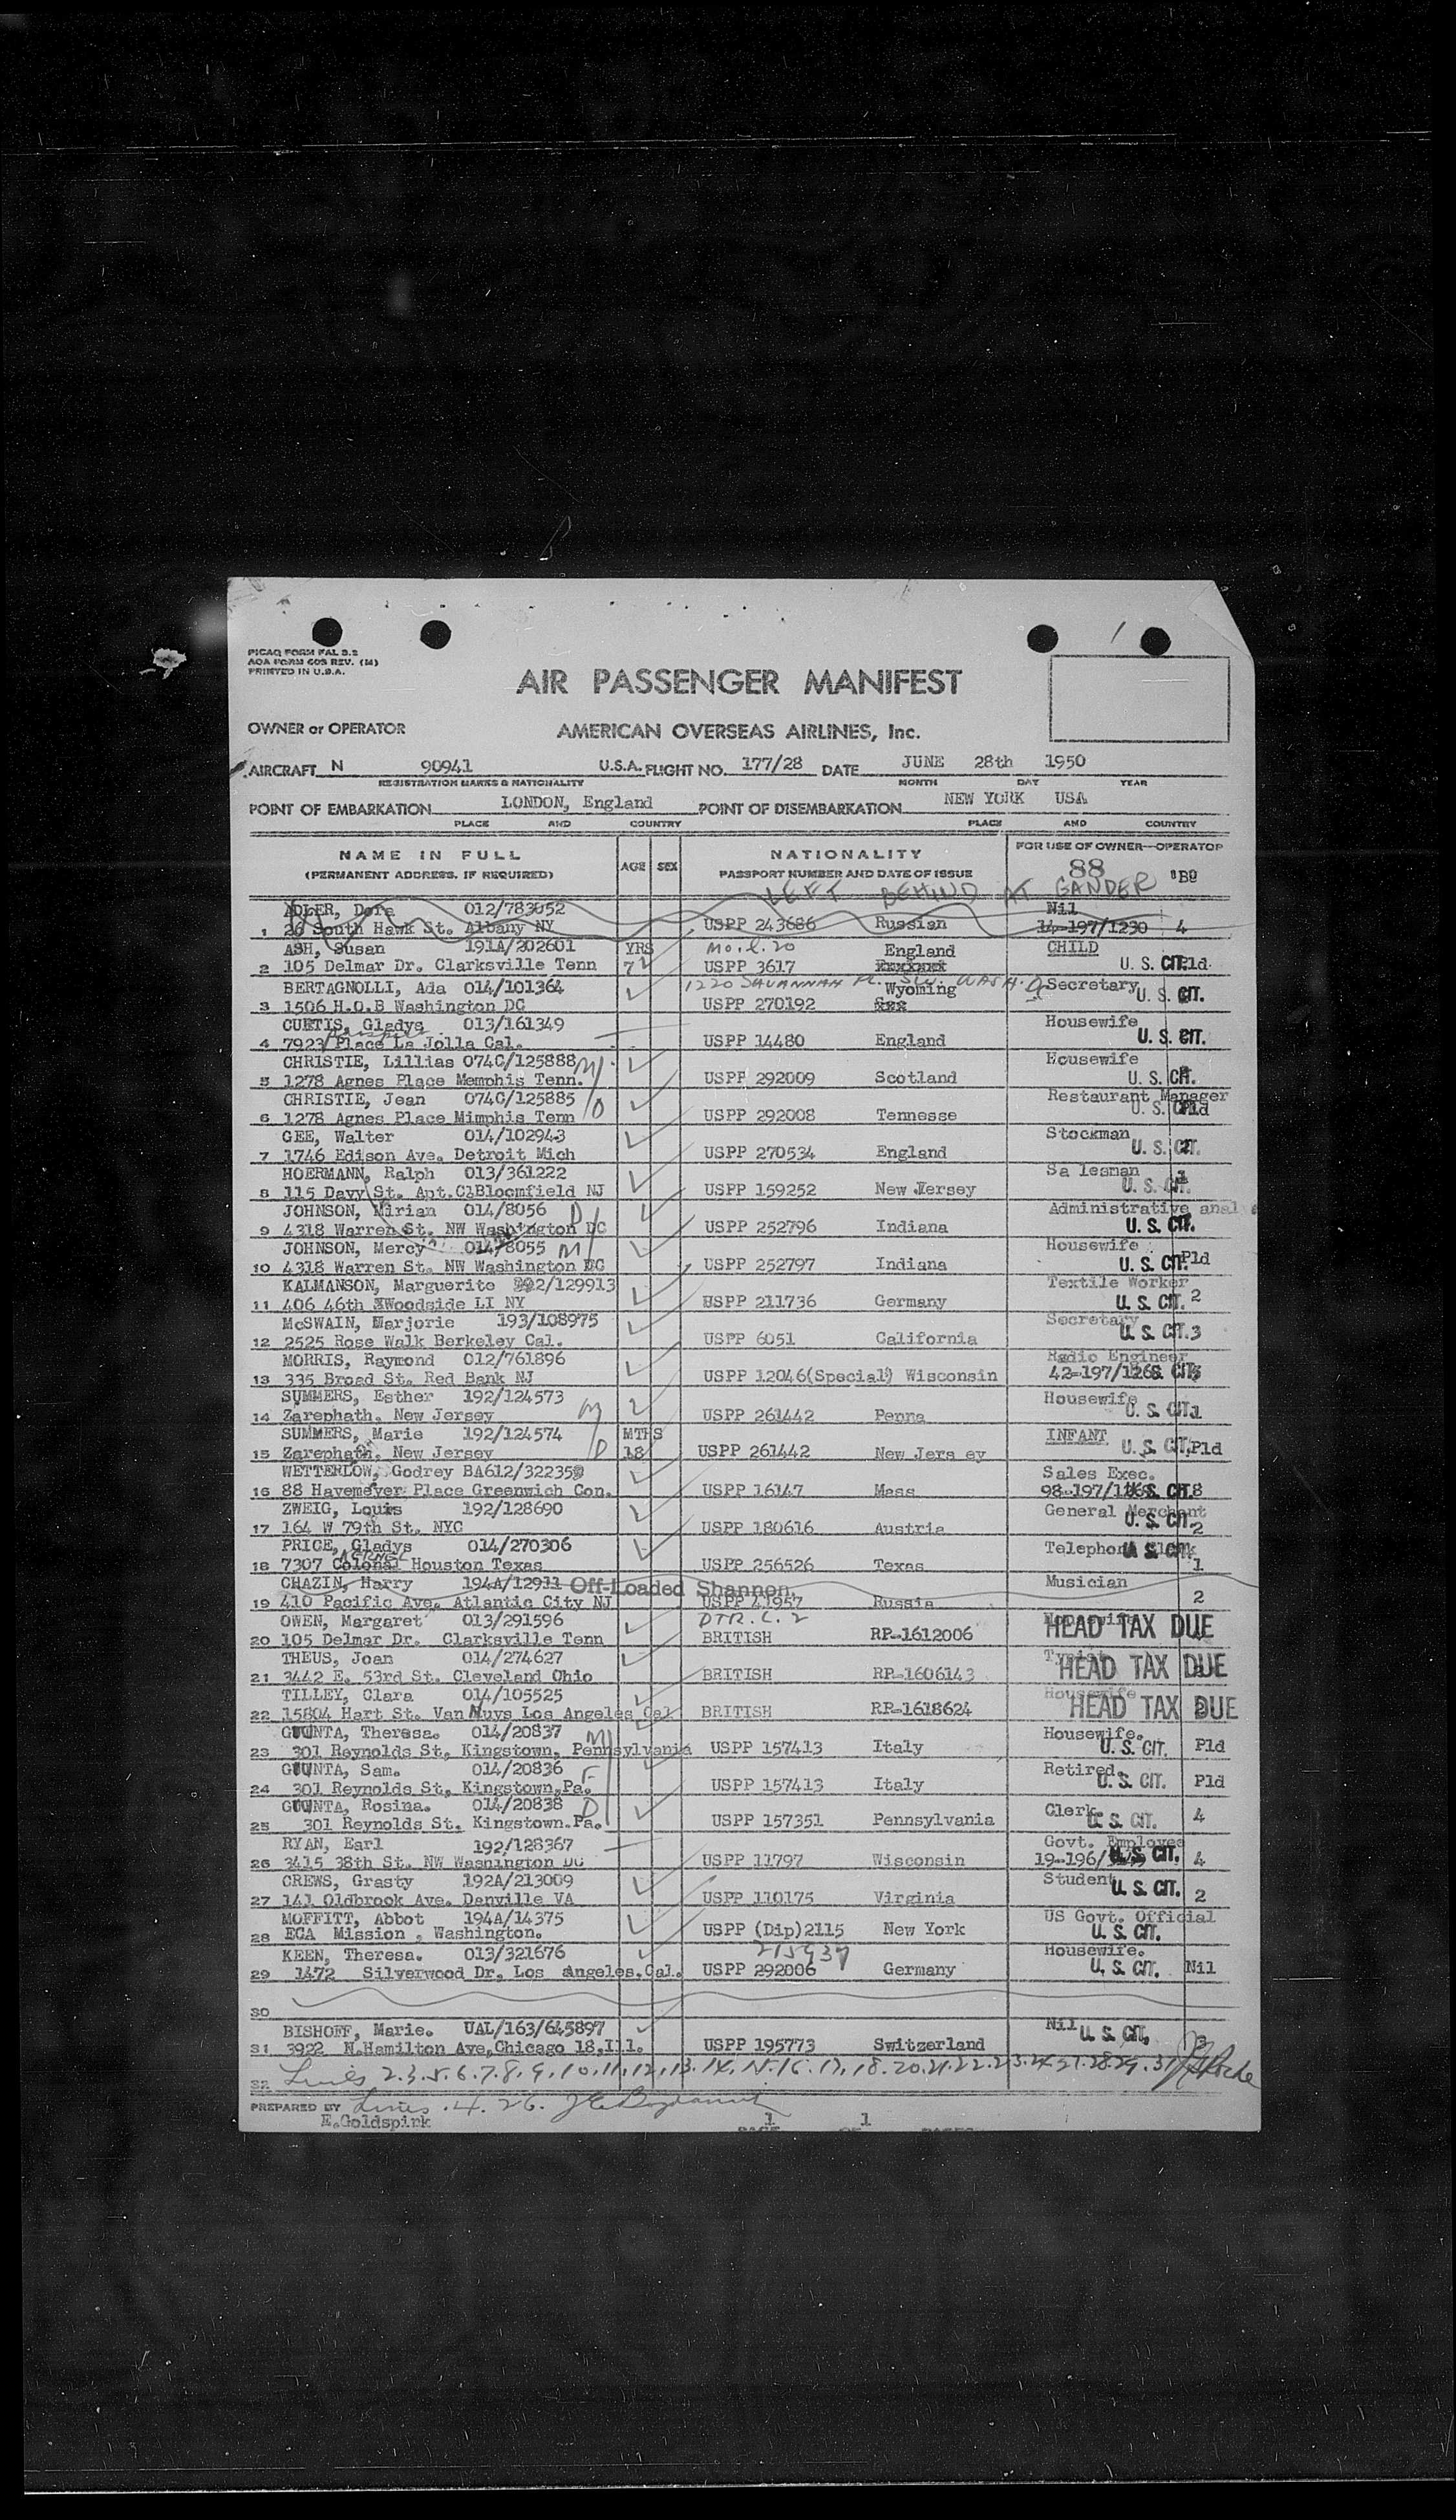 PICAO FORM FAL 2.2
AOA FORM 605 REV. (M)
PRINTED IN U.S.A.
AIR PASSENGER MANIFEST
OWNER or OPERATOR AMERICAN OVERSEAS AIRLINES, Inc.
AIRCRAFT N 90941 U.S.A. FLIGHT NO. 177/28 DATE JUNE 28th 1950
REGISTRATION MARKS & NATIONALITY MONTH DAY YEAR
POINT OF EMBARKATION LONDON, England POINT OF DISEMBARKATION NEW YORK USA
PLACE AND COUNTRY PLACE AND COUNTRY
NAME IN FULL AGE SEX NATIONALITY FOR USE OF OWNER—OPERATOR
(PERMANENT ADDRESS, IF REQUIRED) PASSPORT NUMBER AND DATE OF ISSUE 88
LEFT BEHIND AT GANDER
ADLER, Dora 012/783052 Nil
1 26 South Hawk St. Albany NY USPP 243686 Russian 14-197/1230 4
ASH, Susan 191A/202601 YRS England CHILD
2 105 Delmar Dr. Clarksville Tenn 7 USPP 3617 U. S. CIT.
BERTAGNOLLI, Ada 014/101364 1220 SAVANNAH PL. S.W. WASH. Wyoming Secretary
3 1506 H.O.B Washington DC USPP 270192 U. S. CIT.
CURTIS, Gladys 013/161349 Housewife
4 7923 Place La Jolla Cal. USPP 14480 England U. S. CIT.
CHRISTIE, Lillias 074C/125888 M Housewife
5 1278 Agnes Place Memphis Tenn. USPP 292009 Scotland U. S. CIT.
CHRISTIE, Jean 074C/125885 Restaurant Manager
6 1278 Agnes Place Mimphis Tenn D USPP 292008 Tennesse U. S. CIT. Pld
GEE, Walter 014/102943 Stockman
7 1746 Edison Ave. Detroit Mich USPP 270534 England U. S. CIT.
HOERMANN, Ralph 013/361222 Salesman 1
8 115 Davy St. Apt.C1Bloomfield NJ USPP 159252 New Jersey U. S. CIT.
JOHNSON, Mirian 014/8056 D Administrative anal
9 4318 Warren St. NW Washington DC USPP 252796 Indiana U. S. CIT.
JOHNSON, Mercy 014/8055 M Housewife
10 4318 Warren St. NW Washington DC USPP 252797 Indiana U. S. CIT. Pld
KALMANSON, Marguerite 292/129913 Textile Worker
11 406 46th Woodside LI NY USPP 211736 Germany U. S. CIT. 2
McSWAIN, Marjorie 193/108975 Secretary
12 2525 Rose Walk Berkeley Cal. USPP 6051 California U. S. CIT. 3
MORRIS, Raymond 012/761896 Radio Engineer
13 335 Broad St. Red Bank NJ USPP 12046(Special) Wisconsin 42-197/126 U. S. CIT.
SUMMERS, Esther 192/124573 Housewife
14 Zarephath. New Jersey M USPP 261442 Penna U. S. CIT. 1
SUMMERS, Marie 192/124574 MTHS INFANT
15 Zarephath. New Jersey D 18 USPP 261442 New Jers ey U. S. CIT. Pld
WETTERLOW, Godrey BA612/32235 Sales Exec.
16 88 Havemeyer Place Greenwich Con. USPP 16147 Mass 98-197/1 U. S. CIT. 8
ZWEIG, Louis 192/128690 General Merchant
17 164 W 79th St. NYC USPP 180616 Austria U. S. CIT. 2
PRICE, Gladys 014/270306 Telephone Clerk
18 7307 Colonal Houston Texas USPP 256526 Texas U. S. CIT. 1
CHAZIN, Harry 194A/12911 Off-Loaded Shannon. Musician
19 410 Pacific Ave. Atlantic City NJ USPP 41957 Russia 2
OWEN, Margaret 013/291596 Housewife
20 105 Delmar Dr. Clarksville Tenn BRITISH RP-1612006 HEAD TAX DUE
THEUS, Joan 014/274627 Typist
21 3442 E. 53rd St. Cleveland Ohio BRITISH RP-1606143 HEAD TAX DUE
TILLEY, Clara 014/105525 Housewife
22 15804 Hart St. Van Nuys Los Angeles Cal BRITISH RP-1618624 HEAD TAX DUE
GUUNTA, Theresa. 014/20837 M Housewife.
23 301 Reynolds St, Kingstown, Pennsylvania USPP 157413 Italy U. S. CIT. Pld
GUUNTA, Sam. 014/20836 F Retired.
24 301 Reynolds St, Kingstown,Pa. USPP 157413 Italy U. S. CIT. Pld
GUUNTA, Rosina. 014/20838 D Clerk
25 301 Reynolds St. Kingstown.Pa. USPP 157351 Pennsylvania U. S. CIT. 4
RYAN, Earl 192/128367 Govt. Employee
26 3415 38th St. NW Washington DC USPP 11797 Wisconsin 19-196/ U. S. CIT. 4
CREWS, Grasty 192A/213009 Student
27 141 Oldbrook Ave. Danville VA USPP 110175 Virginia U. S. CIT. 2
MOFFITT, Abbot 194A/14375 US Govt. Official
28 ECA Mission , Washington. USPP (Dip)2115 New York U. S. CIT.
KEEN, Theresa. 013/321676 215937 Housewife.
29 1472 Silverwood Dr, Los Angeles.Cal. USPP 292006 Germany U. S. CIT. Nil
30
BISHOFF, Marie. UAL/163/645897 Nil
31 3922 N.Hamilton Ave,Chicago 18,Ill. USPP 195773 Switzerland U. S. CIT. 3
32 Lines 2.3.5.6.7.8.9.10.11.12.13.14.15.16.17.18.20.21.22.23.24.27.28.29.31
PREPARED BY Lines .4. 26.
E.Goldspink 1 1
PAGE OF PAGES